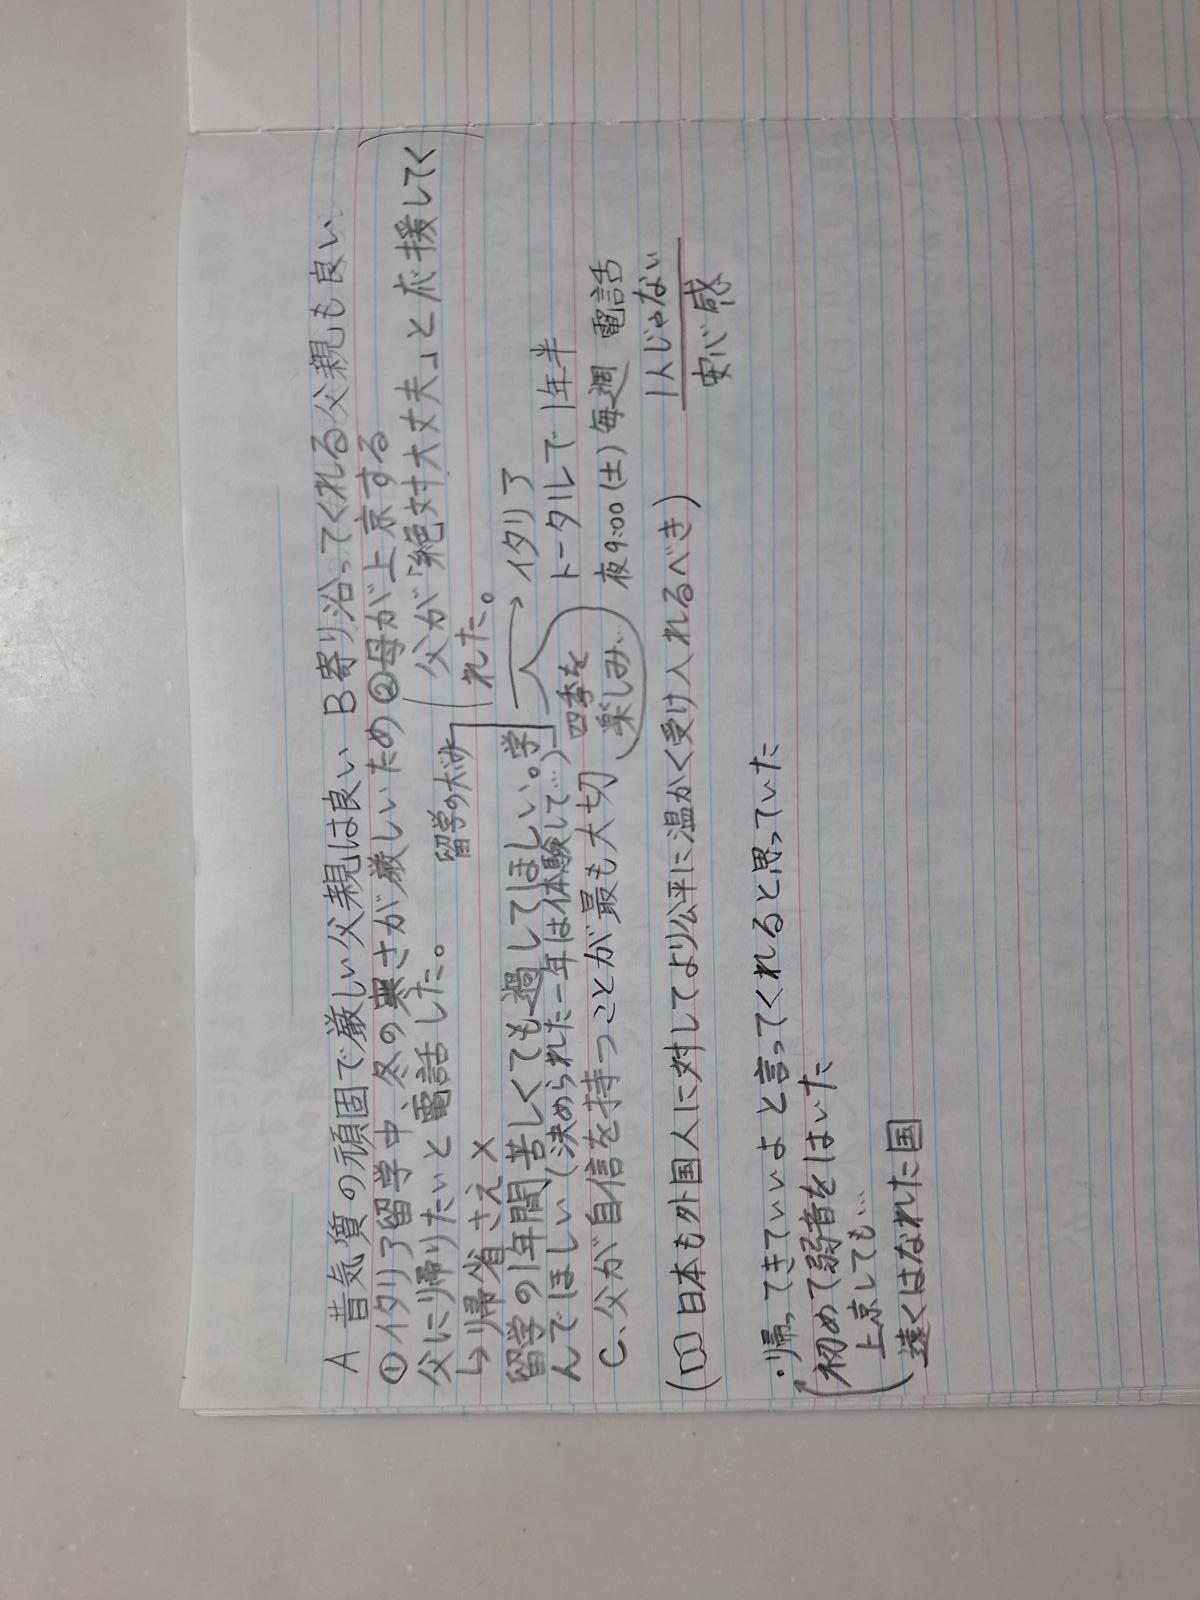 A 昔気質の頑固で厳しい父親は良い B 寄り沿ってくれる父親も良い
①イタリア留学中、冬の寒さが厳しいため ②母が上京する
父に帰りたいと電話した。
(父が「絶対大丈夫」と応援してく
れた。)
↳帰省さえ×
留学の大変
留学の1年間苦しくても過してほしい。学
んでほしい(決められた一年は体験して…)
→イタリア
トータルで1年半
四季を
楽しみ…
C、父が自信を持つことが最も大切
夜9:00(土)毎週 電話
1人じゃない
安心感
(日本も外国人に対してより公平に温かく受け入れるべき)
・帰ってきていいよと言ってくれると思っていた
初めて弱音をはいた
上京しても…
遠くはなれた国